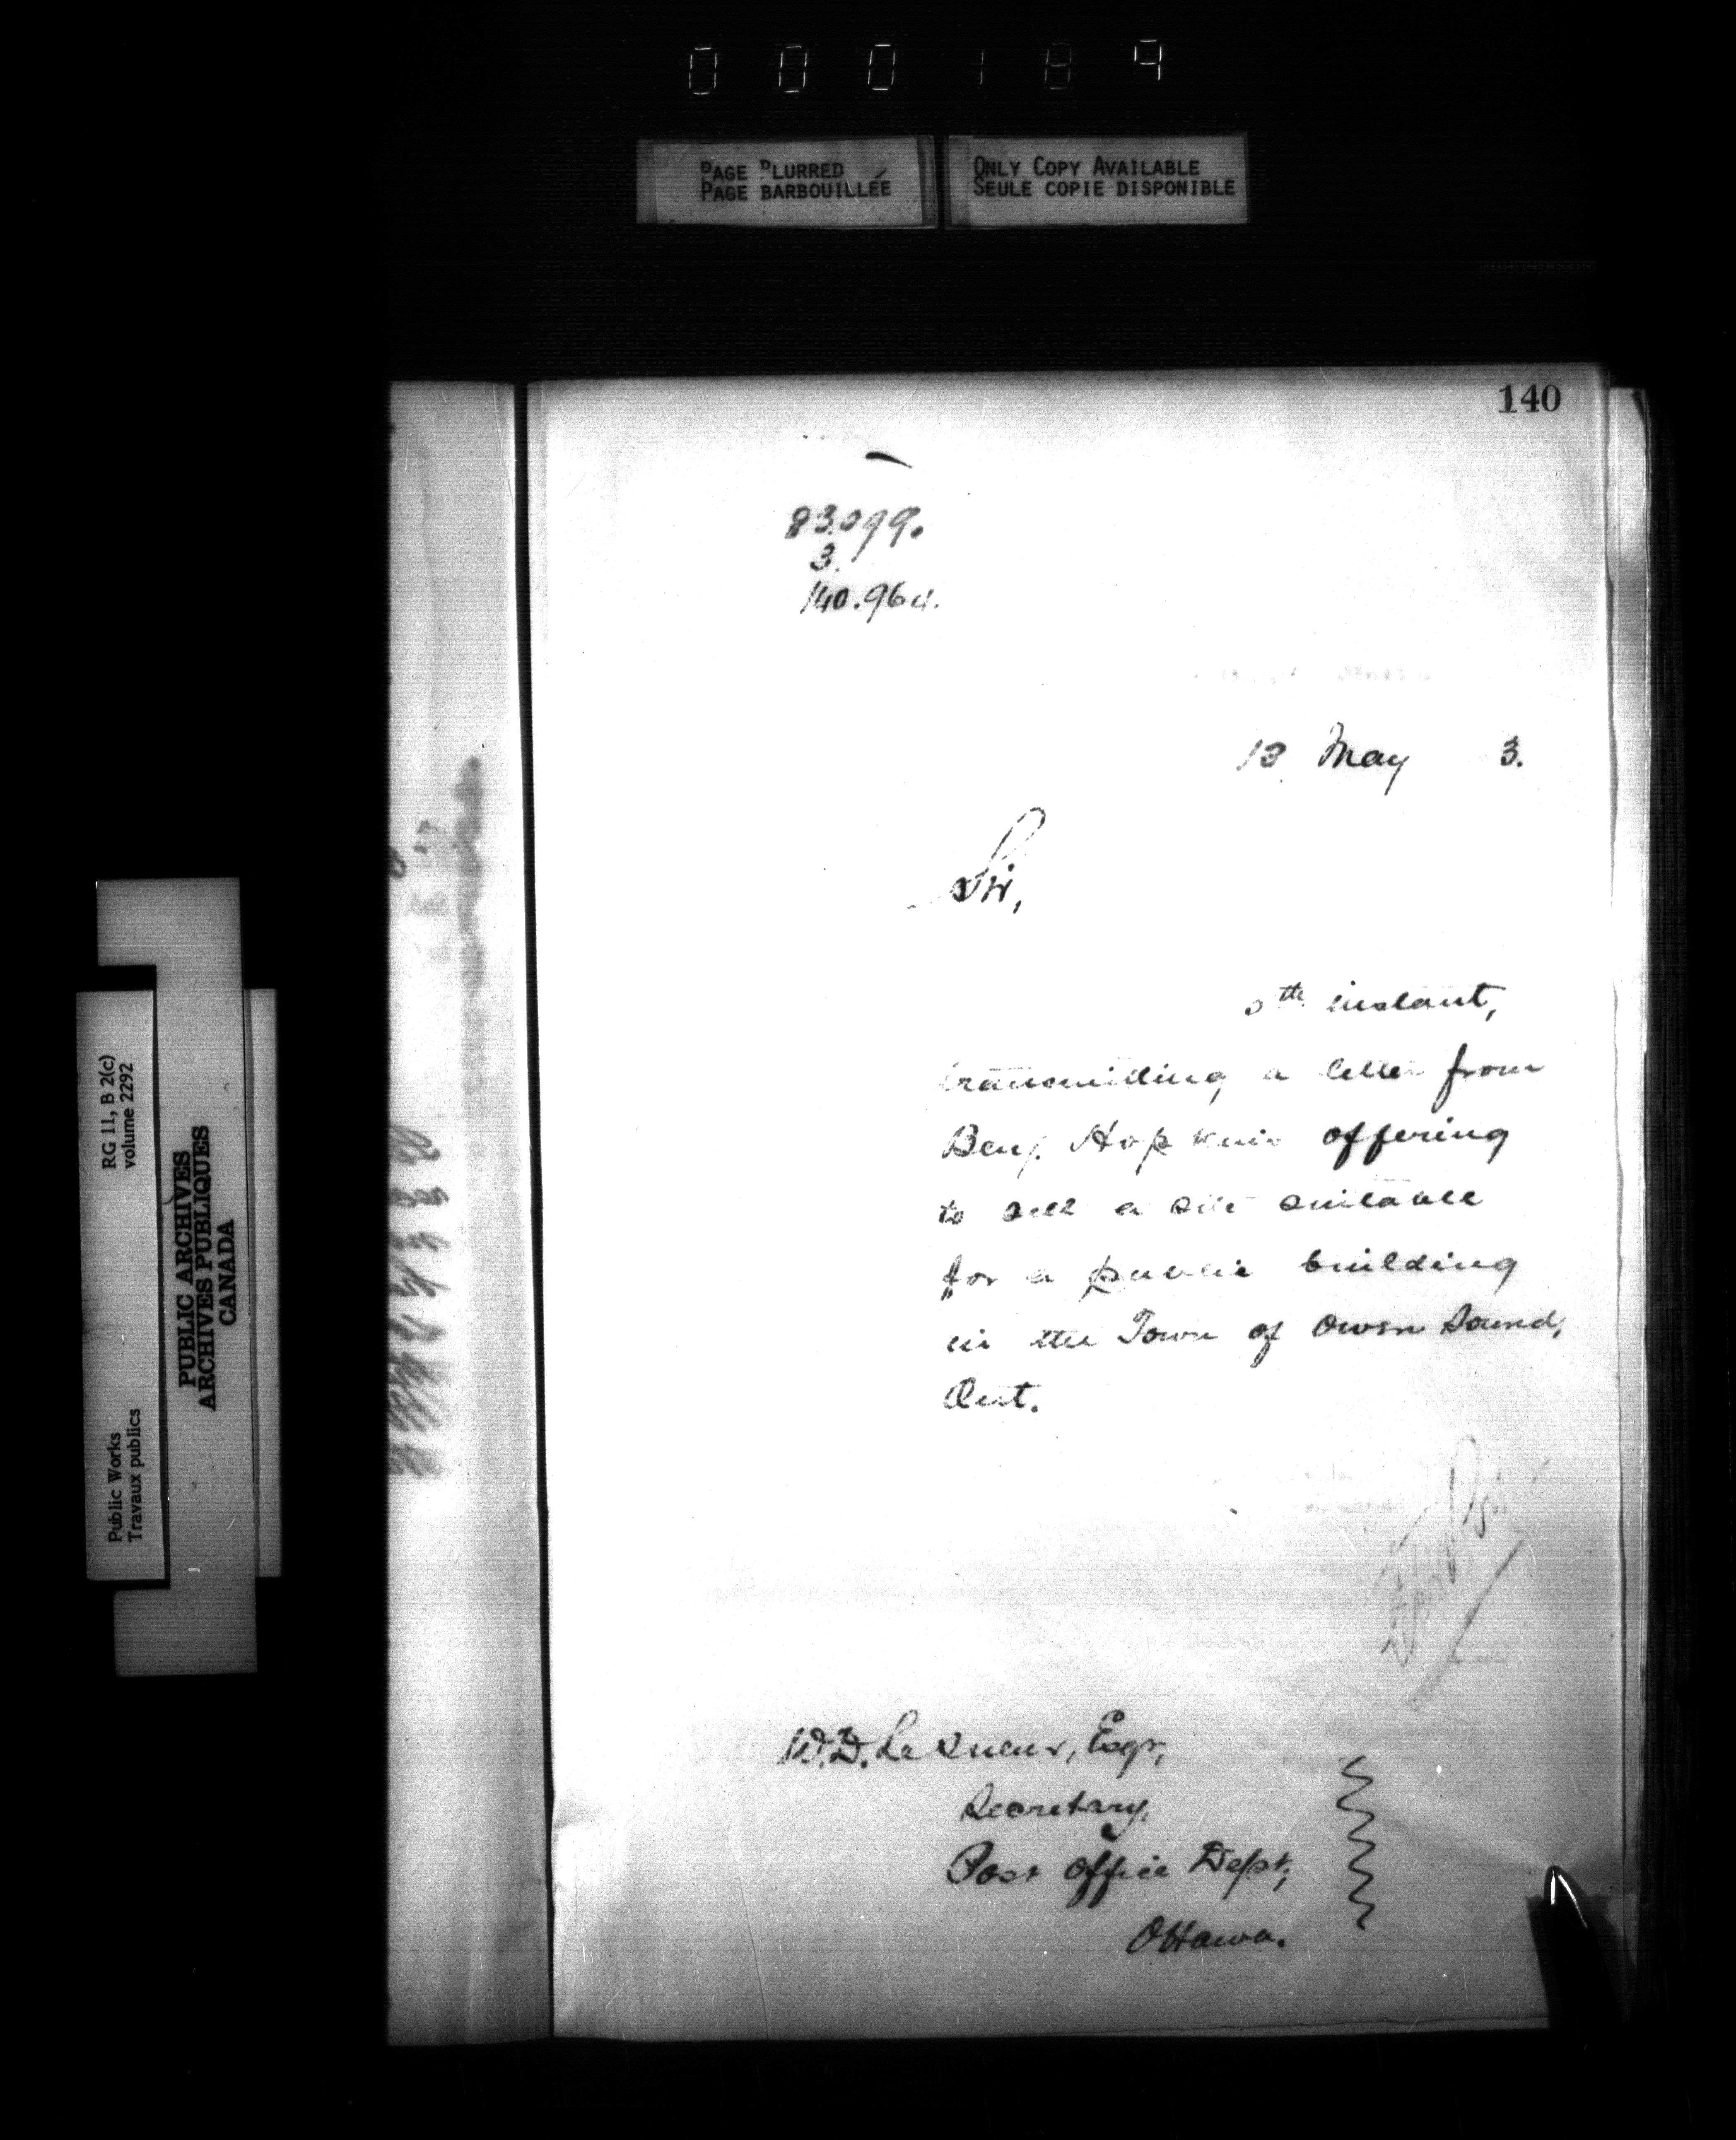 000189
PAGE BLURRED
PAGE BARBOUILLÉE
ONLY COPY AVAILABLE
SEULE COPIE DISPONIBLE
140
83.099.
3.
140.964.
13 May 3.
Sir,
th instant,
transmitting a letter from
Benj. Hopkins offering
to sell a site suitable
for a public building
in the Town of Owen Sound,
Ont.
W.D. LeSueur, Esqr,
Secretary,
Post Office Dept,
Ottawa.
RG 11, B 2(c)
volume 2292
Public Works
Travaux publics
PUBLIC ARCHIVES
ARCHIVES PUBLIQUES
CANADA